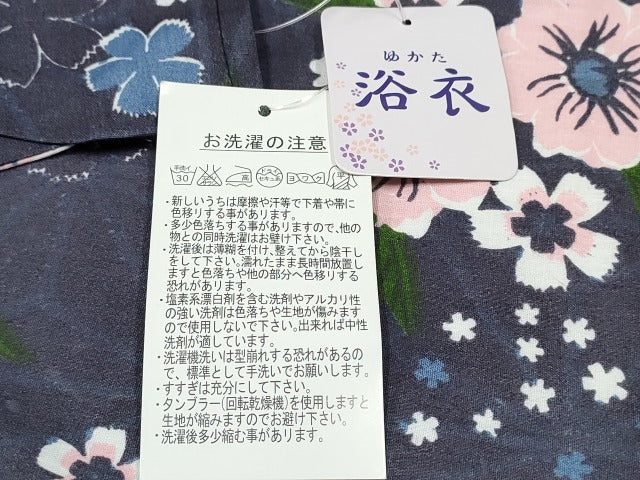 ゆかた
浴衣
お洗濯の注意
手洗イ
30
高
ヨワク
平
・新しいうちは摩擦や汗等で下着や帯に
色移りする事があります。
・多少色落ちする事がありますので、他の
物との同時洗濯はお壁け下さい。
・洗濯後は薄糊を付け、整えてから陰干し
をして下さい。濡れたまま長時間放置し
ますと色落ちや他の部分へ色移りする
恐れがあります。
・塩素系漂白剤を含む洗剤やアルカリ性
の強い洗剤は色落ちや生地が傷みます
ので使用しないで下さい。出来れば中性
洗剤が適しています。
・洗濯機洗いは型崩れする恐れがあるの
で、標準として手洗いでお願いします。
・すすぎは充分にして下さい。
・タンブラー(回転乾燥機)を使用しますと
生地が縮みますのでお避け下さい。
・洗濯後多少縮む事があります。